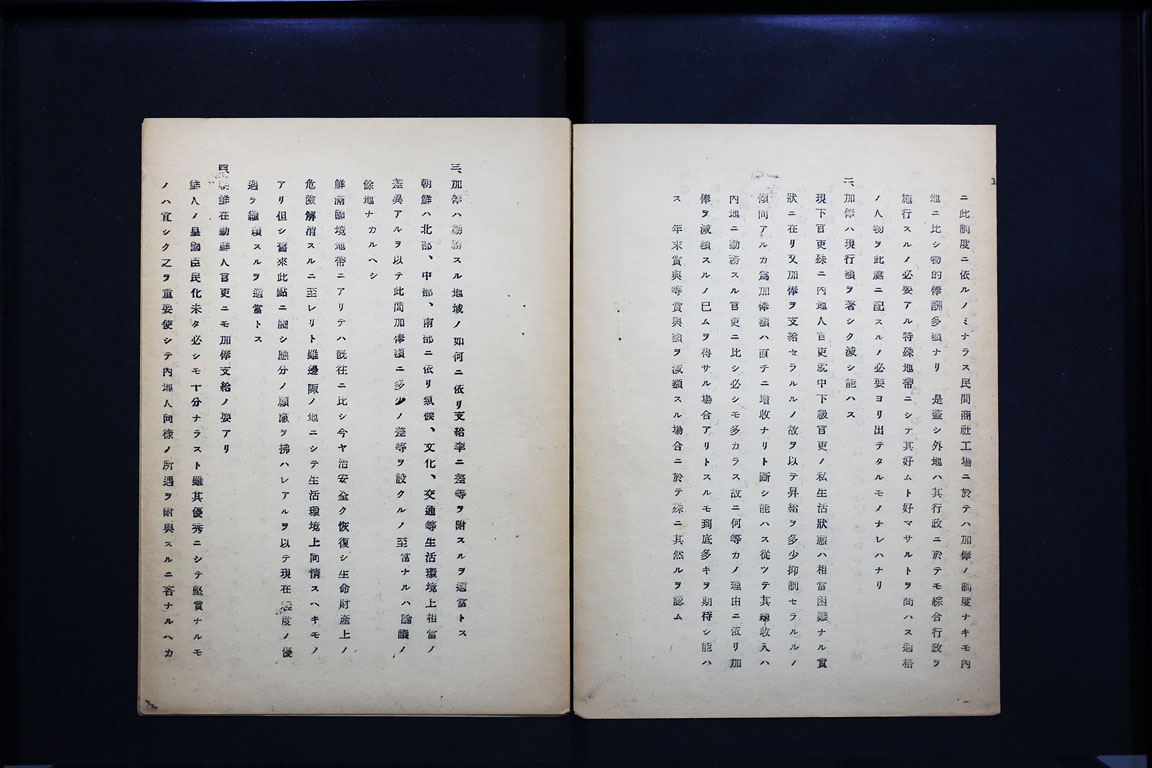 ニ此制度ニ依ルノミナラス民間商社工場ニ於テハ加俸ノ制度ナキモ內
地ニ比シ物的俸酬多額ナリ 是蓋シ外地ハ其行政ニ於テモ綜合行政ヲ
施行スルノ必要アル特殊地帶ニシテ其好ムト好マサルトヲ問ハス適格
ノ人物ヲ此處ニ配スルノ必要ヨリ出テタルモノナレハナリ
二、加俸ハ現行額ヲ著シク減シ能ハス
現下官吏殊ニ內地人官吏就中下級官吏ノ私生活狀態ハ相當困難ナル實
狀ニ在リ又加俸ヲ支給セラルルノ故ヲ以テ昇給ヲ多少抑制セラルルノ
傾向アルカ爲加俸額ハ直チニ增收ナリト斷シ能ハス從ツテ其總收入ハ
內地ニ勤務スル官吏ニ比シ必シモ多カラス故ニ何等カノ理由ニ依リ加
俸ヲ減額スルノ已ムヲ得サル場合アリトスルモ到底多キヲ期待シ能ハ
ス 年末賞與等賞與額ヲ減額スル場合ニ於テ殊ニ其然ルヲ認ム
三、加俸ハ勤務スル地域ノ如何ニ依リ支給率ニ差等ヲ附スルヲ適當トス
朝鮮ハ北部、中部、南部ニ依リ氣候、文化、交通等生活環境上相當ノ
差異アルヲ以テ此間加俸額ニ多少ノ差等ヲ設クルノ至當ナルハ論議ノ
餘地ナカルヘシ
鮮滿國境地帶ニアリテハ既往ニ比シ今ヤ治安全ク恢復シ生命財產上ノ
危險解消スルニ至レリト雖邊陬ノ地ニシテ生活環境上同情スヘキモノ
アリ但シ舊來此點ニ關シ應分ノ顧慮ヲ拂ハレアルヲ以テ現在程度ノ優
遇ヲ繼續スルヲ適當トス
四、朝鮮在勤鮮人官吏ニモ加俸支給ノ要アリ
鮮人ノ皇國臣民化未タ必シモ十分ナラスト雖其優秀ニシテ堅實ナルモ
ノハ宜シク之ヲ重要使シテ內地人同樣ノ所遇ヲ附與スルニ吝ナルヘカ